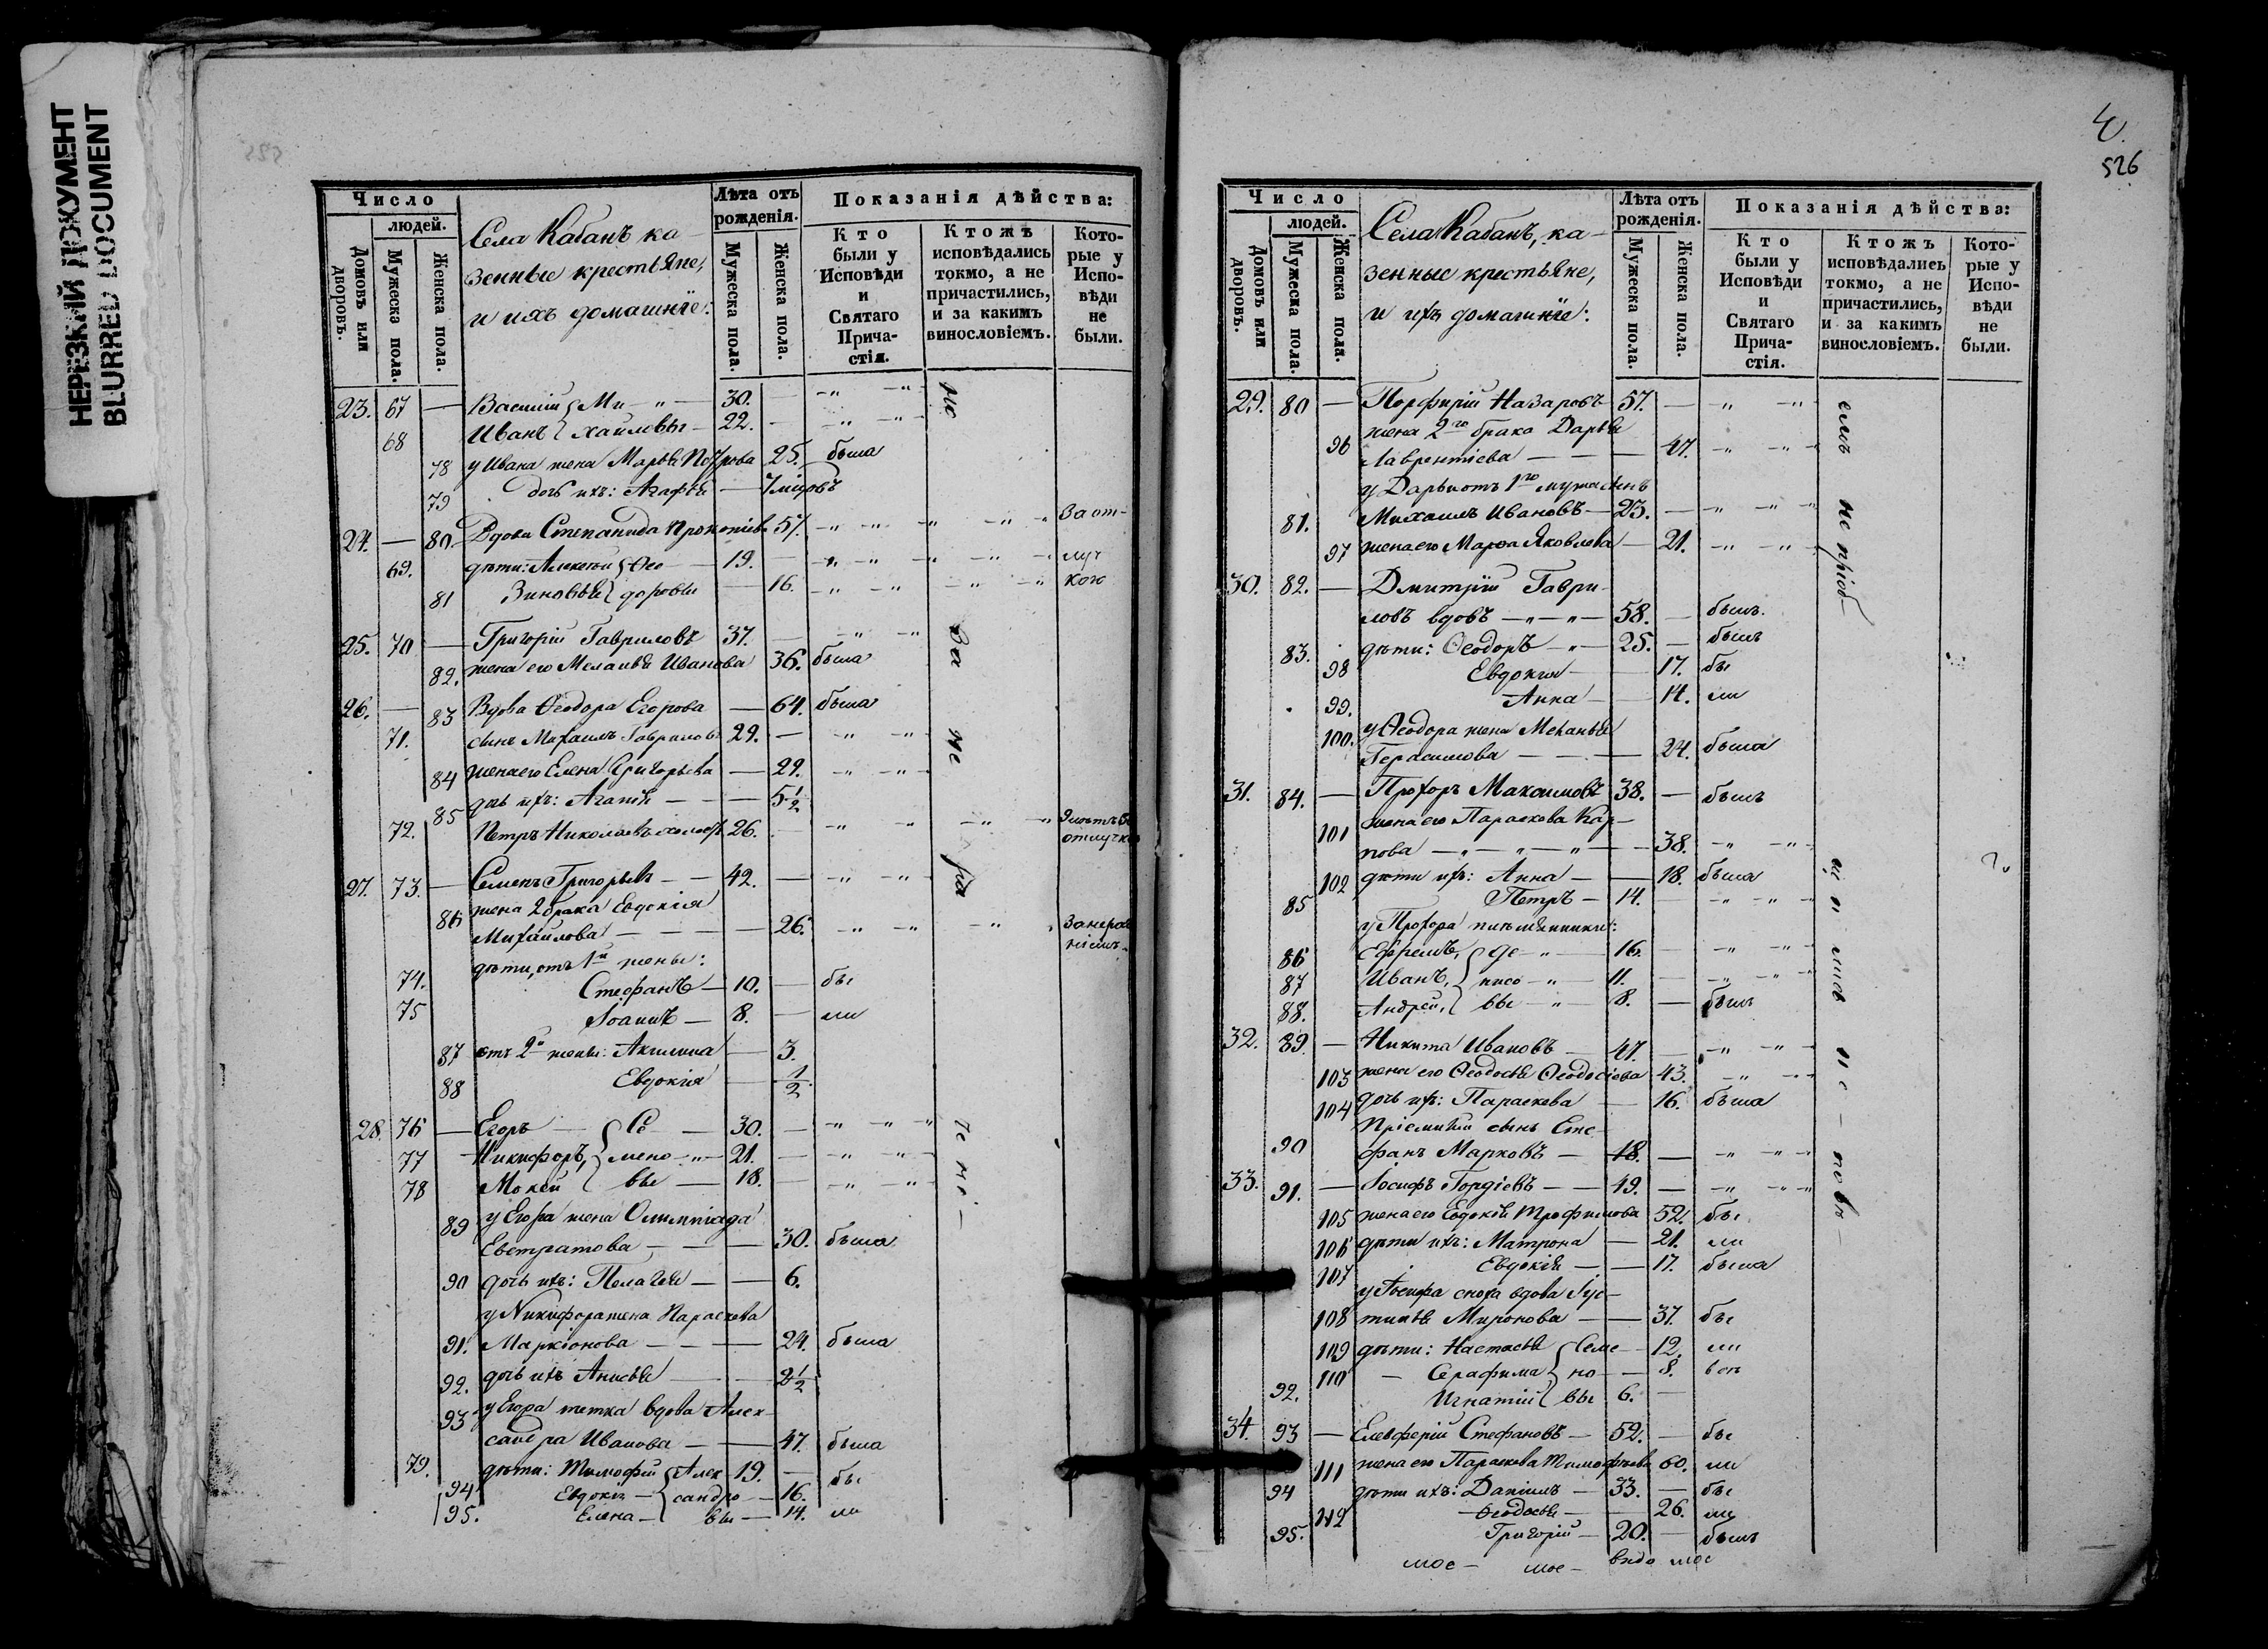 НЕРЕЗКИЙ ДОКУМЕНТ
BLURRED DOCUMENT
Число
людей.
Домовъ или дворовъ.
Мужеска пола.
Женска пола.
Села Кабанъ ка-
зенные крестьяне,
и ихъ домашніе:
Лѣта отъ
рожденія.
Мужеска пола.
Женска пола.
Показанія дѣйства:
Кто
были у
Исповѣди
и
Святаго
Прича-
стія.
Ктожъ
исповѣдались
токмо, а не
причастились,
и за какимъ
винословіемъ.
Кото-
рые у
Испо-
вѣди
не
были.
23. 67 — Василій { Ми — 30. —
68 Иванъ { хайловы — 22. —
78 у Ивана жена Марья Петрова 25. была
79 дочь ихъ: Агафья — 7 мѣ
24. — 80 Вдова Степанида Прокопіева 57. За от-
69. дѣти: Алексей { Ѳео — 19. — луч
81 Зиновья { доровы — 16. кою
25. 70 — Григорій Гавриловъ 37. —
82. жена его Меланья Иванова 36. была
26. — 83 Вдова Ѳеодора Егорова — 64. была
71. сынъ Михаилъ Гавриловъ 29. —
84 жена его Елена Григорьева — 29.
85 дочь ихъ: Агапія — — — 5 1/2
72. Петръ Николаевъ холостъ 26. —
отлучкѣ
27. 73. — Семенъ Григорьевъ — — 42. —
86 жена 2 брака Евдокія
Михайлова — — — — 26. За нерад
ніемъ
дѣти, отъ 1й жены:
74. Стефанъ — 10. — бы
75 Іоаннъ — 8. — ли
87 отъ 2й жены: Акилина — 3.
88 Евдокія — 1/2
28. 76 — Егоръ — { Се — 30. —
77 Никифоръ, { мено — 21. —
78 Мокей { вы — 18. —
89 у Егора жена Олимпіада
Евстратова — — — 30. была
90 дочь ихъ: Пелагея — — 6.
у Никифора жена Параскева
91. Маркіонова — — — 24. была
92. дочь ихъ Анисья — — 2 1/2
93 у Егора тетка вдова Алек-
сандра Иванова — — 47. была
79. дѣти: Тимофей { Алек — 19. — бы
94 Евдокія — { сандро — 16.
95. Елена — { вы — 14. ли
За не ра
4
526
Число
людей.
Домовъ или дворовъ.
Мужеска пола.
Женска пола.
Села Кабанъ, ка-
зенные крестьяне,
и ихъ домашніе:
Лѣта отъ
рожденія.
Мужеска пола.
Женска пола.
Показанія дѣйства:
Кто
были у
Исповѣди
и
Святаго
Прича-
стія.
Ктожъ
исповѣдались
токмо, а не
причастились,
и за какимъ
винословіемъ.
Кото-
рые у
Испо-
вѣди
не
были.
29. 80 — Порфирій Назаровъ 57. —
жена 2го брака Дарья
96 Лаврентіева — — — 47.
у Дарьи отъ 1го мужа сынъ
81. Михаилъ Ивановъ — 23. —
97 жена его Марѳа Яковлева — 21.
30. 82. — Дмитрій Гаври-
ловъ вдовъ — 58. — былъ
83. дѣти: Ѳеодоръ — 25. — былъ
98 Евдокія — 17. бы
99. Анна — 14. ли
100. у Ѳеодора жена Меланья
Герасимова — — — 24. была
31. 84. — Прохоръ Максимовъ 38. — былъ
101 жена его Параскева Кар-
пова — — 38.
102 дѣти ихъ: Анна — — 18. была
85 Петръ — 14. —
у Прохора племянники:
86 Ефремъ, { Де — 16. —
87 Иванъ, { нисо — 11. —
88. Андрей, { вы — 8. — былъ
32. 89. — Никита Ивановъ — 47. —
103 жена его Ѳеодосья Ѳеодосіева 43.
104 дочь ихъ: Параскева — 16. была
Пріемный сынъ Сте-
90 фанъ Марковъ — 18. —
33. 91. — Іосифъ Гордіевъ — — 49. —
105 жена его Евдокія Трофимова 52. бы
106 дѣти ихъ: Матрона — 21. ли
107 Евдокія — — 17. была
у Іосифа сноха вдова Іус-
108 тинья Миронова — — 37. бы
109 дѣти: Настасья { Семе — 12. ли
110 — Серафима { но — 8.
92. Игнатій { вы 6. —
34. 93 — Елевферій Стефановъ — 52. — бы
111 жена его Параскева Тимофѣева 60. ли
94 дѣти ихъ: Даніилъ — 33. — бы
112 Ѳеодосья — 26. ли
95. Григорій — 20. — былъ